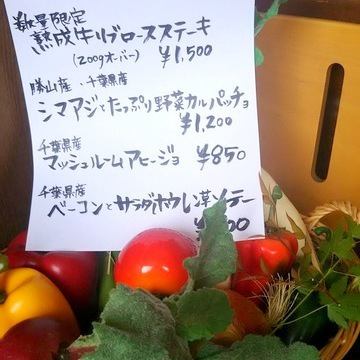 数量限定
熟成牛リブロースステーキ
(200gオーバー) ¥1,500
勝山産、千葉県産
シマアジとたっぷり野菜カルパッチョ
¥1,200
千葉県産
マッシュルームアヒージョ ¥850
千葉県産
ベーコンとサラダホウレン草ソテー